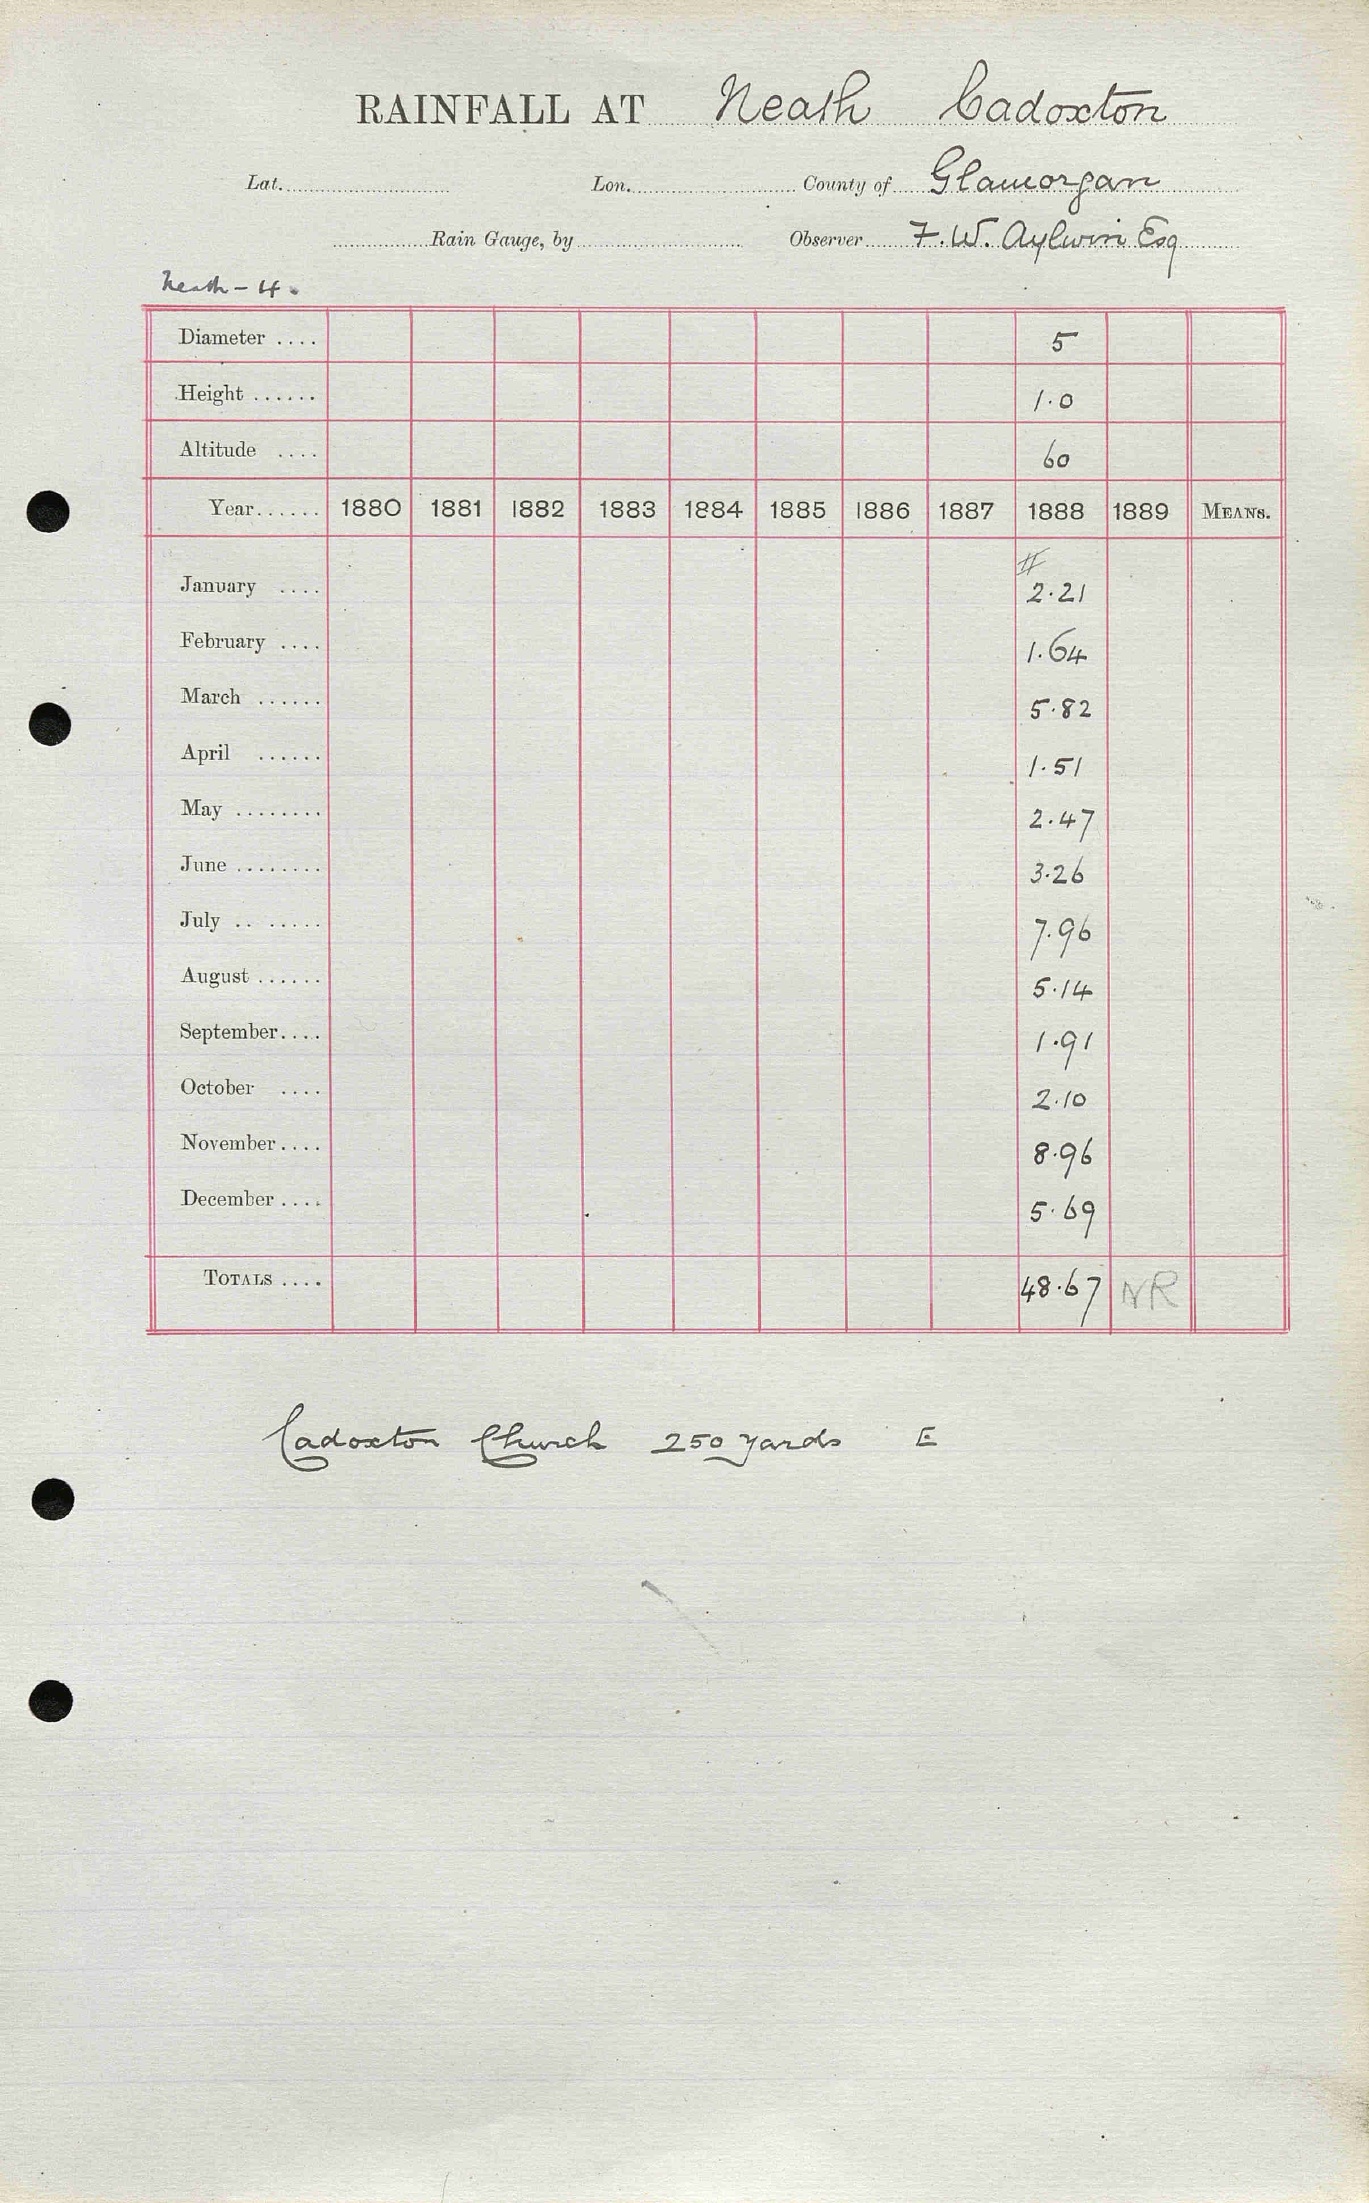 RAINFALL AT Neath Cadoxton
Lat. Lon. County of Glamorgan
Rain Gauge, by Observer F. W. Aylwin Esq
Neath - 4.
Diameter .... 5
Height ...... 1.0
Altitude .... 60
Year...... 1880 1881 1882 1883 1884 1885 1886 1887 1888 1889 MEANS.
#
January .... 2.21
February .... 1.64
March ...... 5.82
April ...... 1.51
May ........ 2.47
June ........ 3.26
July .. ..... 7.96
August ...... 5.14
September.... 1.91
October .... 2.10
November.... 8.96
December.... 5.69
TOTALS .... 48.67 NR
Cadoxton Church 250 yards E